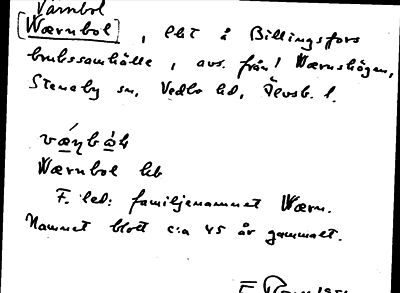 Värnbol
[Wærnbol], lht å Billingsfors
brukssamhälle, avs. från! Wærnshögen,
Steneby sn, Vedbo hd, Älvsb. l.
Wærnbol
F. led: familjenamnet Wærn.
Namnet blott c:a 45 år gammalt.